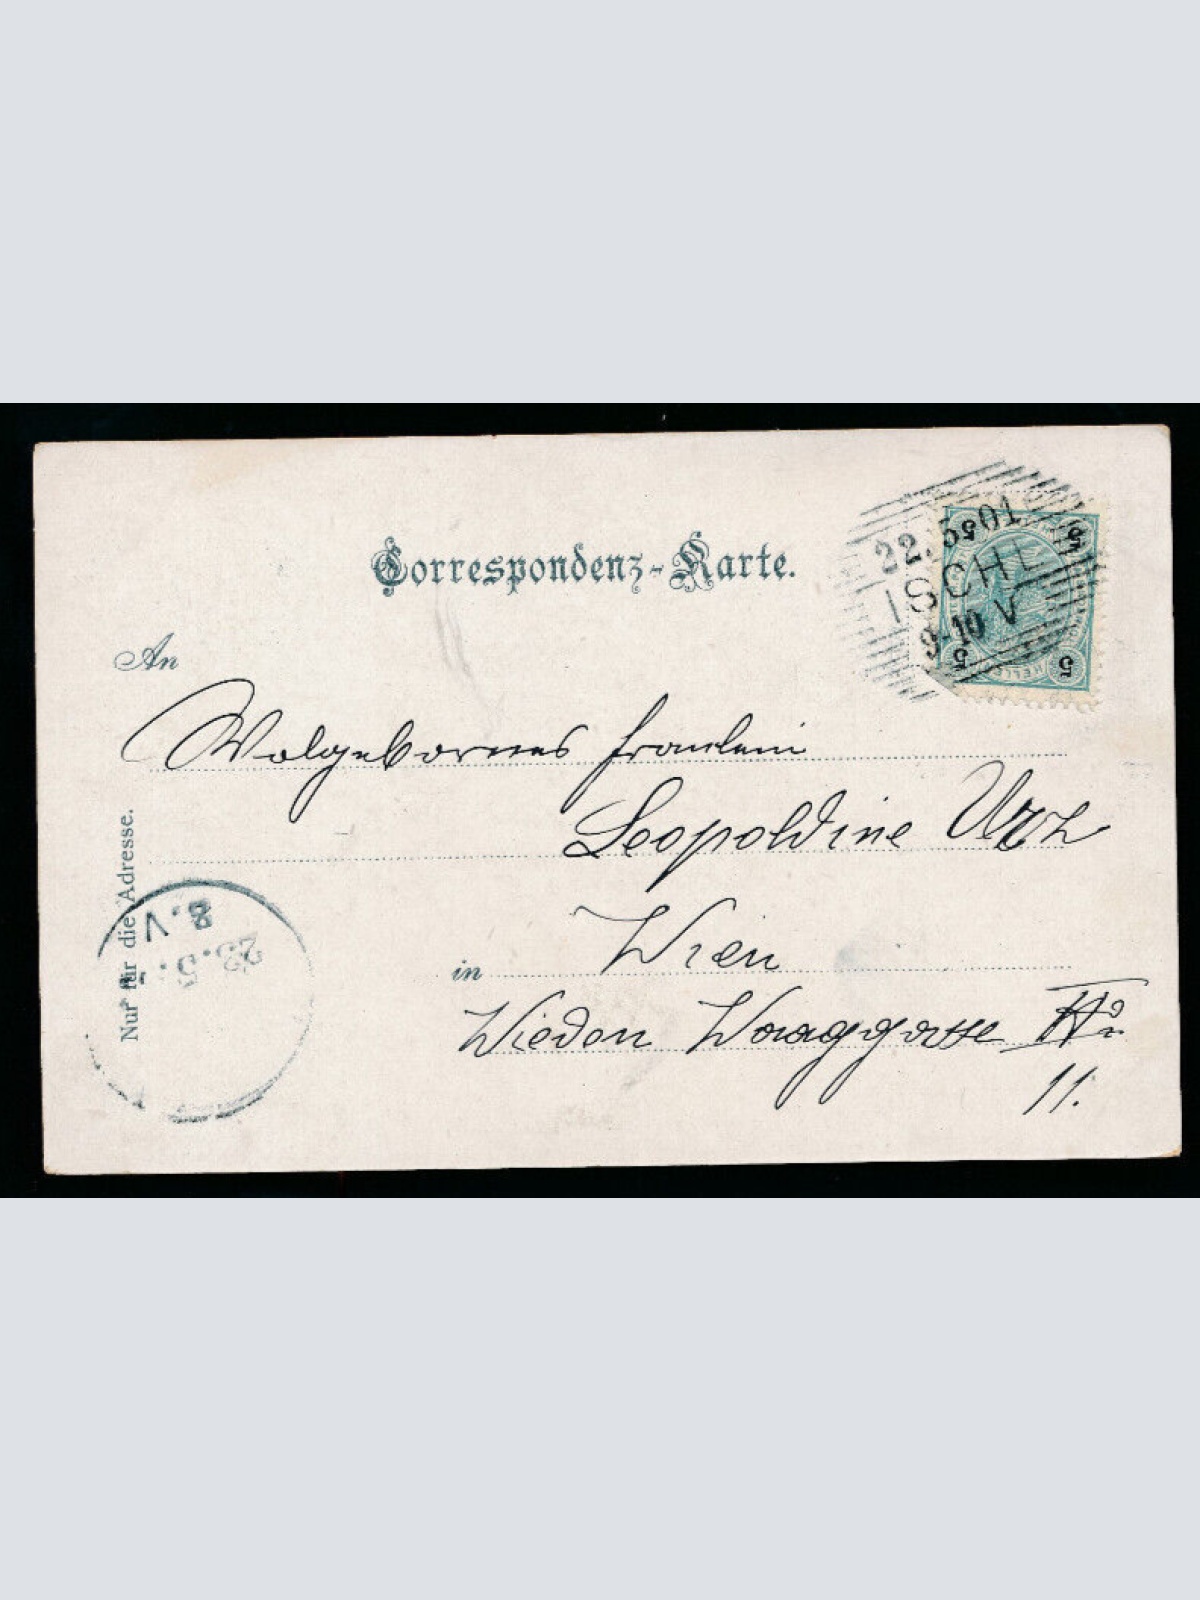 Correspondenz-Karte.
22.5.01
ISCHL
9-10 V
5 5
5 5
HELLER
An
Wolgebornes fraulein
Leopoldine
Wien
in
Wieden Waaggasse No
11.
Nur für die Adresse.
8.V
23.5.